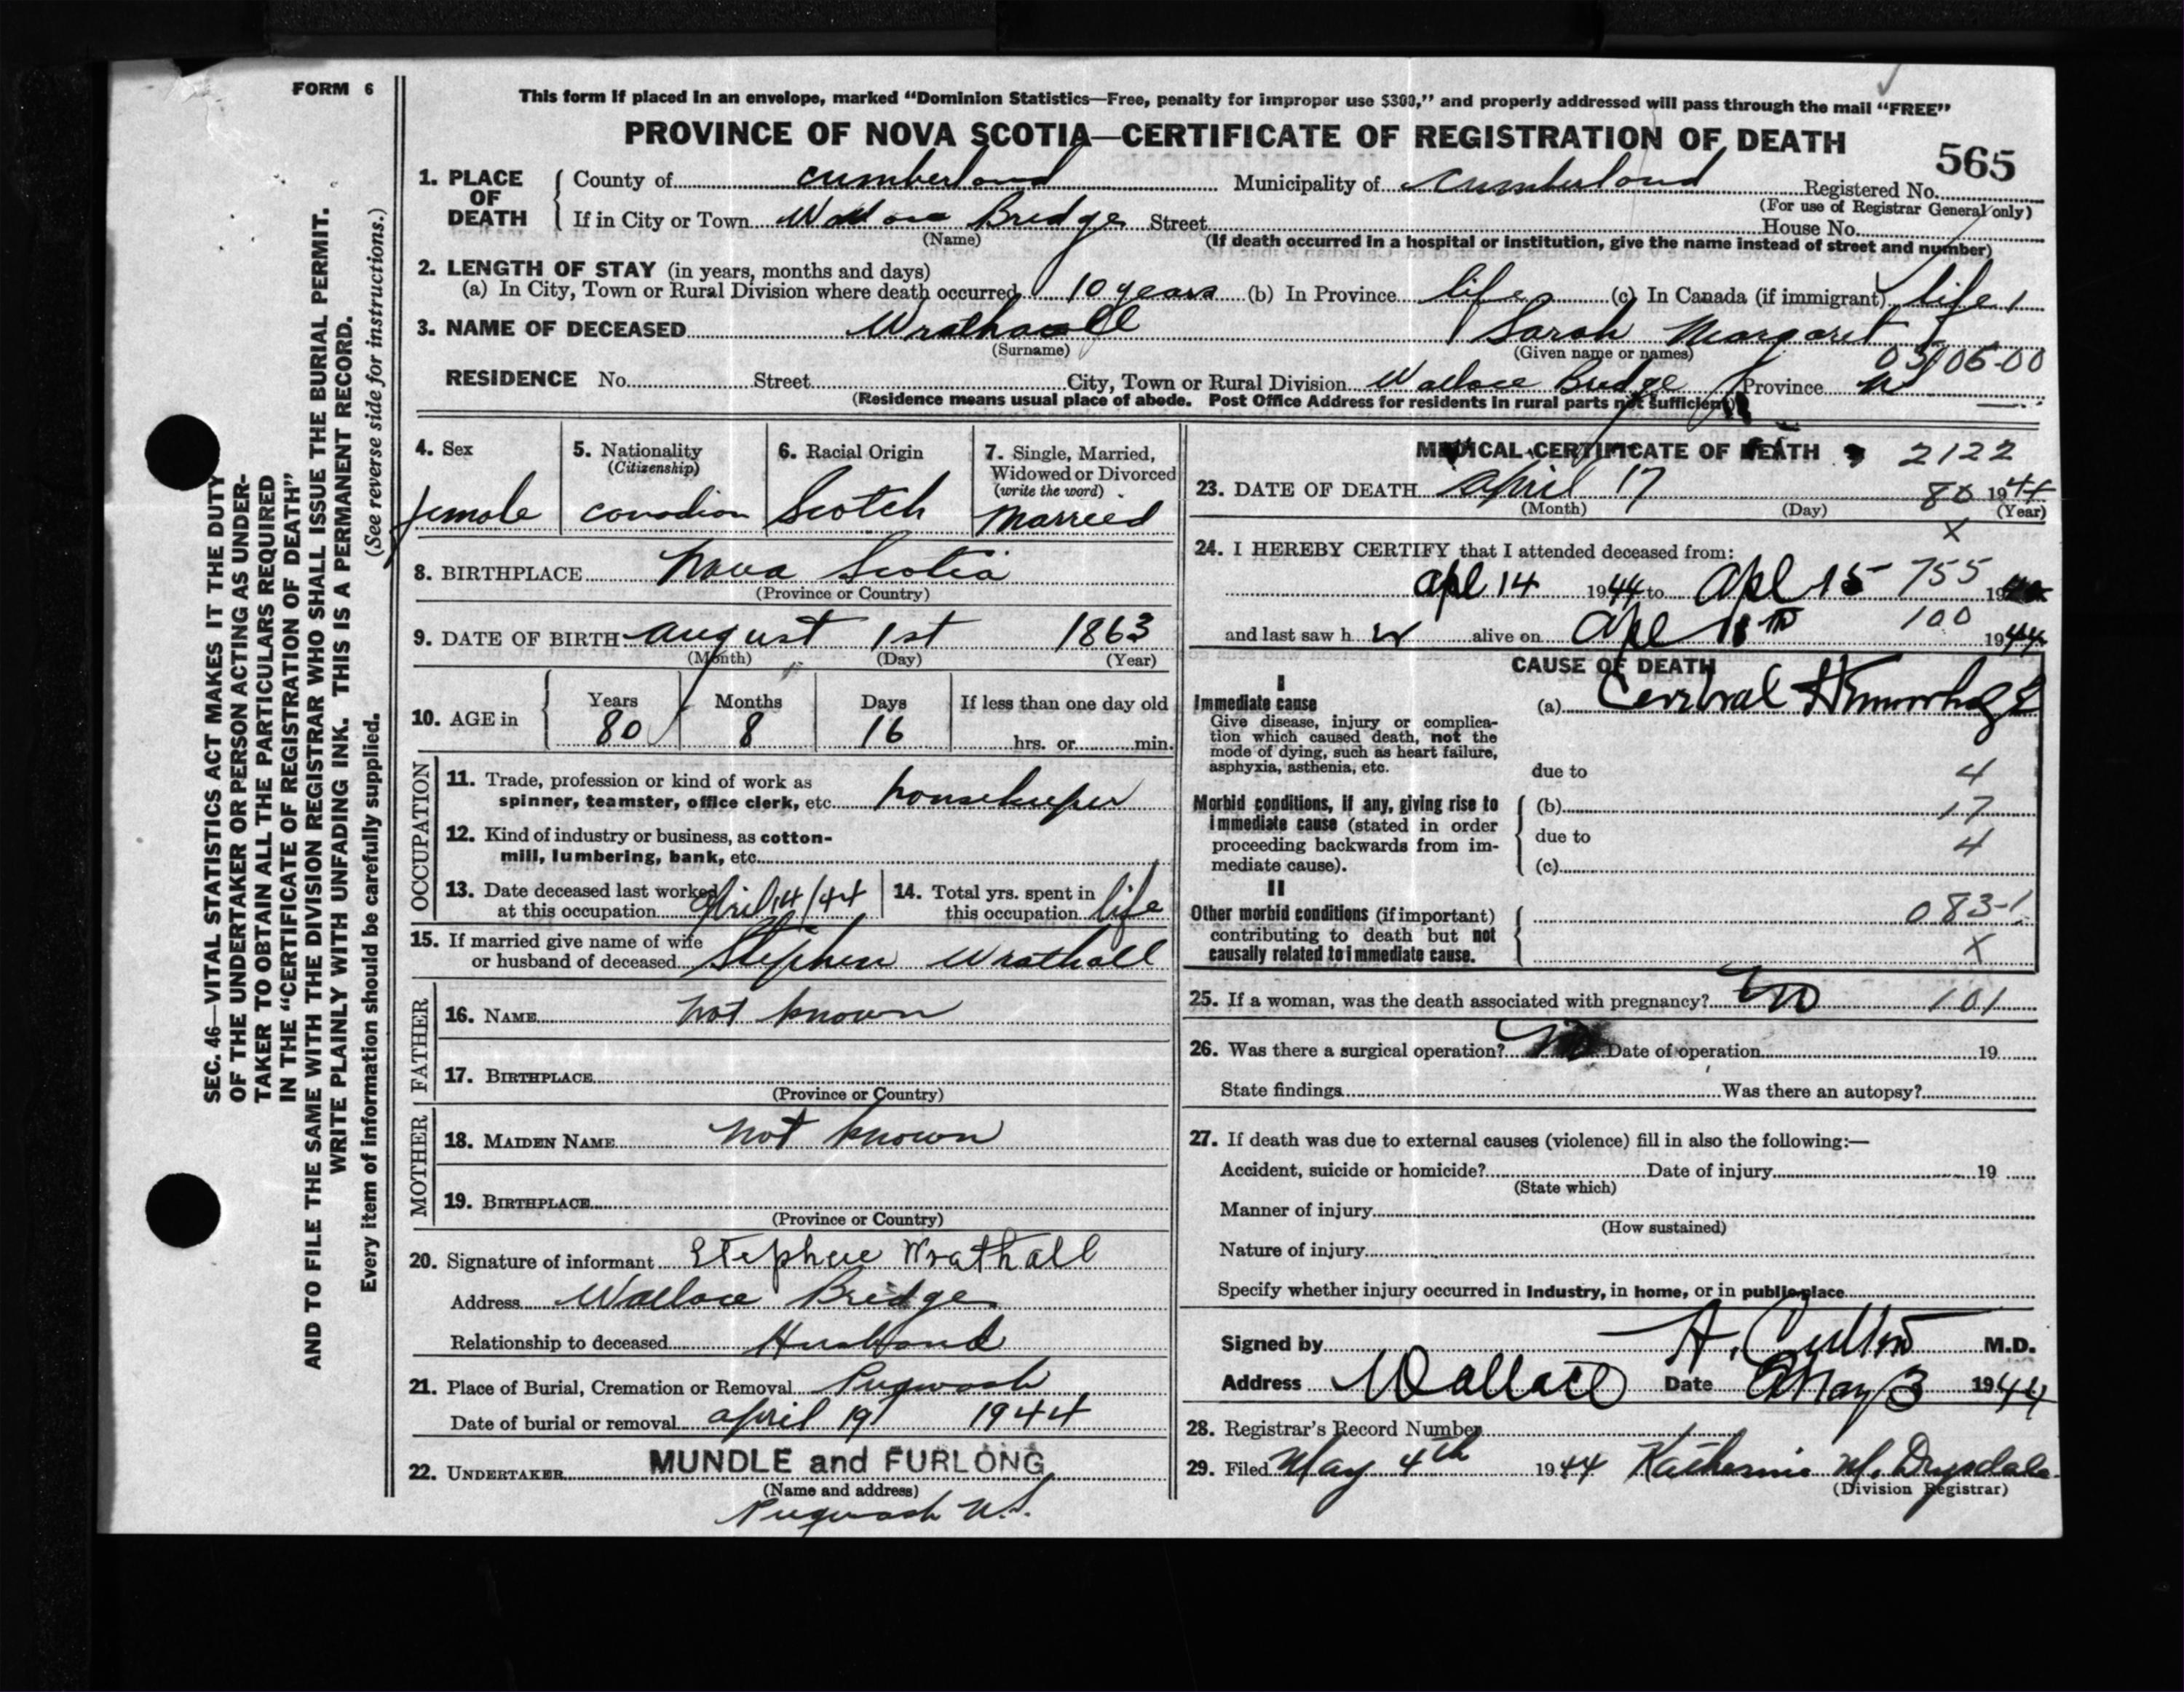 FORM 6
This form if placed in an envelope, marked “Dominion Statistics—Free, penalty for improper use $300,” and properly addressed will pass through the mail “FREE”
PROVINCE OF NOVA SCOTIA—CERTIFICATE OF REGISTRATION OF DEATH
565
1. PLACE OF DEATH
County of Cumberland Municipality of Cumberland Registered No.
(For use of Registrar General only)
If in City or Town Wallace Bridge Street House No.
(Name)
(If death occurred in a hospital or institution, give the name instead of street and number)
2. LENGTH OF STAY (in years, months and days)
(a) In City, Town or Rural Division where death occurred 10 years (b) In Province life (c) In Canada (if immigrant) life
3. NAME OF DECEASED Wrathall Sarah Margaret
(Surname) (Given name or names)
03/06-00
RESIDENCE No. Street City, Town or Rural Division Wallace Bridge Province NS
(Residence means usual place of abode. Post Office Address for residents in rural parts not sufficient)
4. Sex
female
5. Nationality
(Citizenship)
Canadian
6. Racial Origin
Scotch
7. Single, Married,
Widowed or Divorced
(write the word)
Married
8. BIRTHPLACE Nova Scotia
(Province or Country)
9. DATE OF BIRTH August 1st 1863
(Month) (Day) (Year)
10. AGE in
Years Months Days If less than one day old
80 8 16 hrs. or min.
OCCUPATION
11. Trade, profession or kind of work as
spinner, teamster, office clerk, etc. housekeeper
12. Kind of industry or business, as cotton-
mill, lumbering, bank, etc.
13. Date deceased last worked
at this occupation April 14/44
14. Total yrs. spent in
this occupation life
15. If married give name of wife
or husband of deceased Stephen Wrathall
FATHER
16. NAME not known
17. BIRTHPLACE
(Province or Country)
MOTHER
18. MAIDEN NAME not known
19. BIRTHPLACE
(Province or Country)
20. Signature of informant Stephen Wrathall
Address Wallace Bridge
Relationship to deceased Husband
21. Place of Burial, Cremation or Removal Pugwash
Date of burial or removal april 19 1944
22. UNDERTAKER MUNDLE and FURLONG
(Name and address)
Pugwash N.S.
MEDICAL CERTIFICATE OF DEATH
2122
23. DATE OF DEATH April 17 80 1944
(Month) (Day) (Year)
x
24. I HEREBY CERTIFY that I attended deceased from:
Apl 14 1944 to Apl 15 755 19
100
and last saw h er alive on Apl 1944
CAUSE OF DEATH
I
Immediate cause
Give disease, injury or complica-
tion which caused death, not the
mode of dying, such as heart failure,
asphyxia, asthenia, etc.
(a) Cerebral Hemorrhage
due to 4
Morbid conditions, if any, giving rise to
immediate cause (stated in order
proceeding backwards from im-
mediate cause).
(b) 17
due to 4
(c)
II
Other morbid conditions (if important)
contributing to death but not
causally related to immediate cause.
083-1
x
25. If a woman, was the death associated with pregnancy? No 101
26. Was there a surgical operation? No Date of operation 19
State findings Was there an autopsy?
27. If death was due to external causes (violence) fill in also the following:—
Accident, suicide or homicide? Date of injury 19
(State which)
Manner of injury
(How sustained)
Nature of injury
Specify whether injury occurred in industry, in home, or in public place
Signed by M.D.
Address Wallace Date May 3 1944
28. Registrar's Record Number
29. Filed May 4th 1944 Katherine M. Drysdale
(Division Registrar)
SEC. 46—VITAL STATISTICS ACT MAKES IT THE DUTY
OF THE UNDERTAKER OR PERSON ACTING AS UNDER-
TAKER TO OBTAIN ALL THE PARTICULARS REQUIRED
IN THE “CERTIFICATE OF REGISTRATION OF DEATH”
AND TO FILE THE SAME WITH THE DIVISION REGISTRAR WHO SHALL ISSUE THE BURIAL PERMIT.
WRITE PLAINLY WITH UNFADING INK. THIS IS A PERMANENT RECORD.
Every item of information should be carefully supplied. (See reverse side for instructions.)